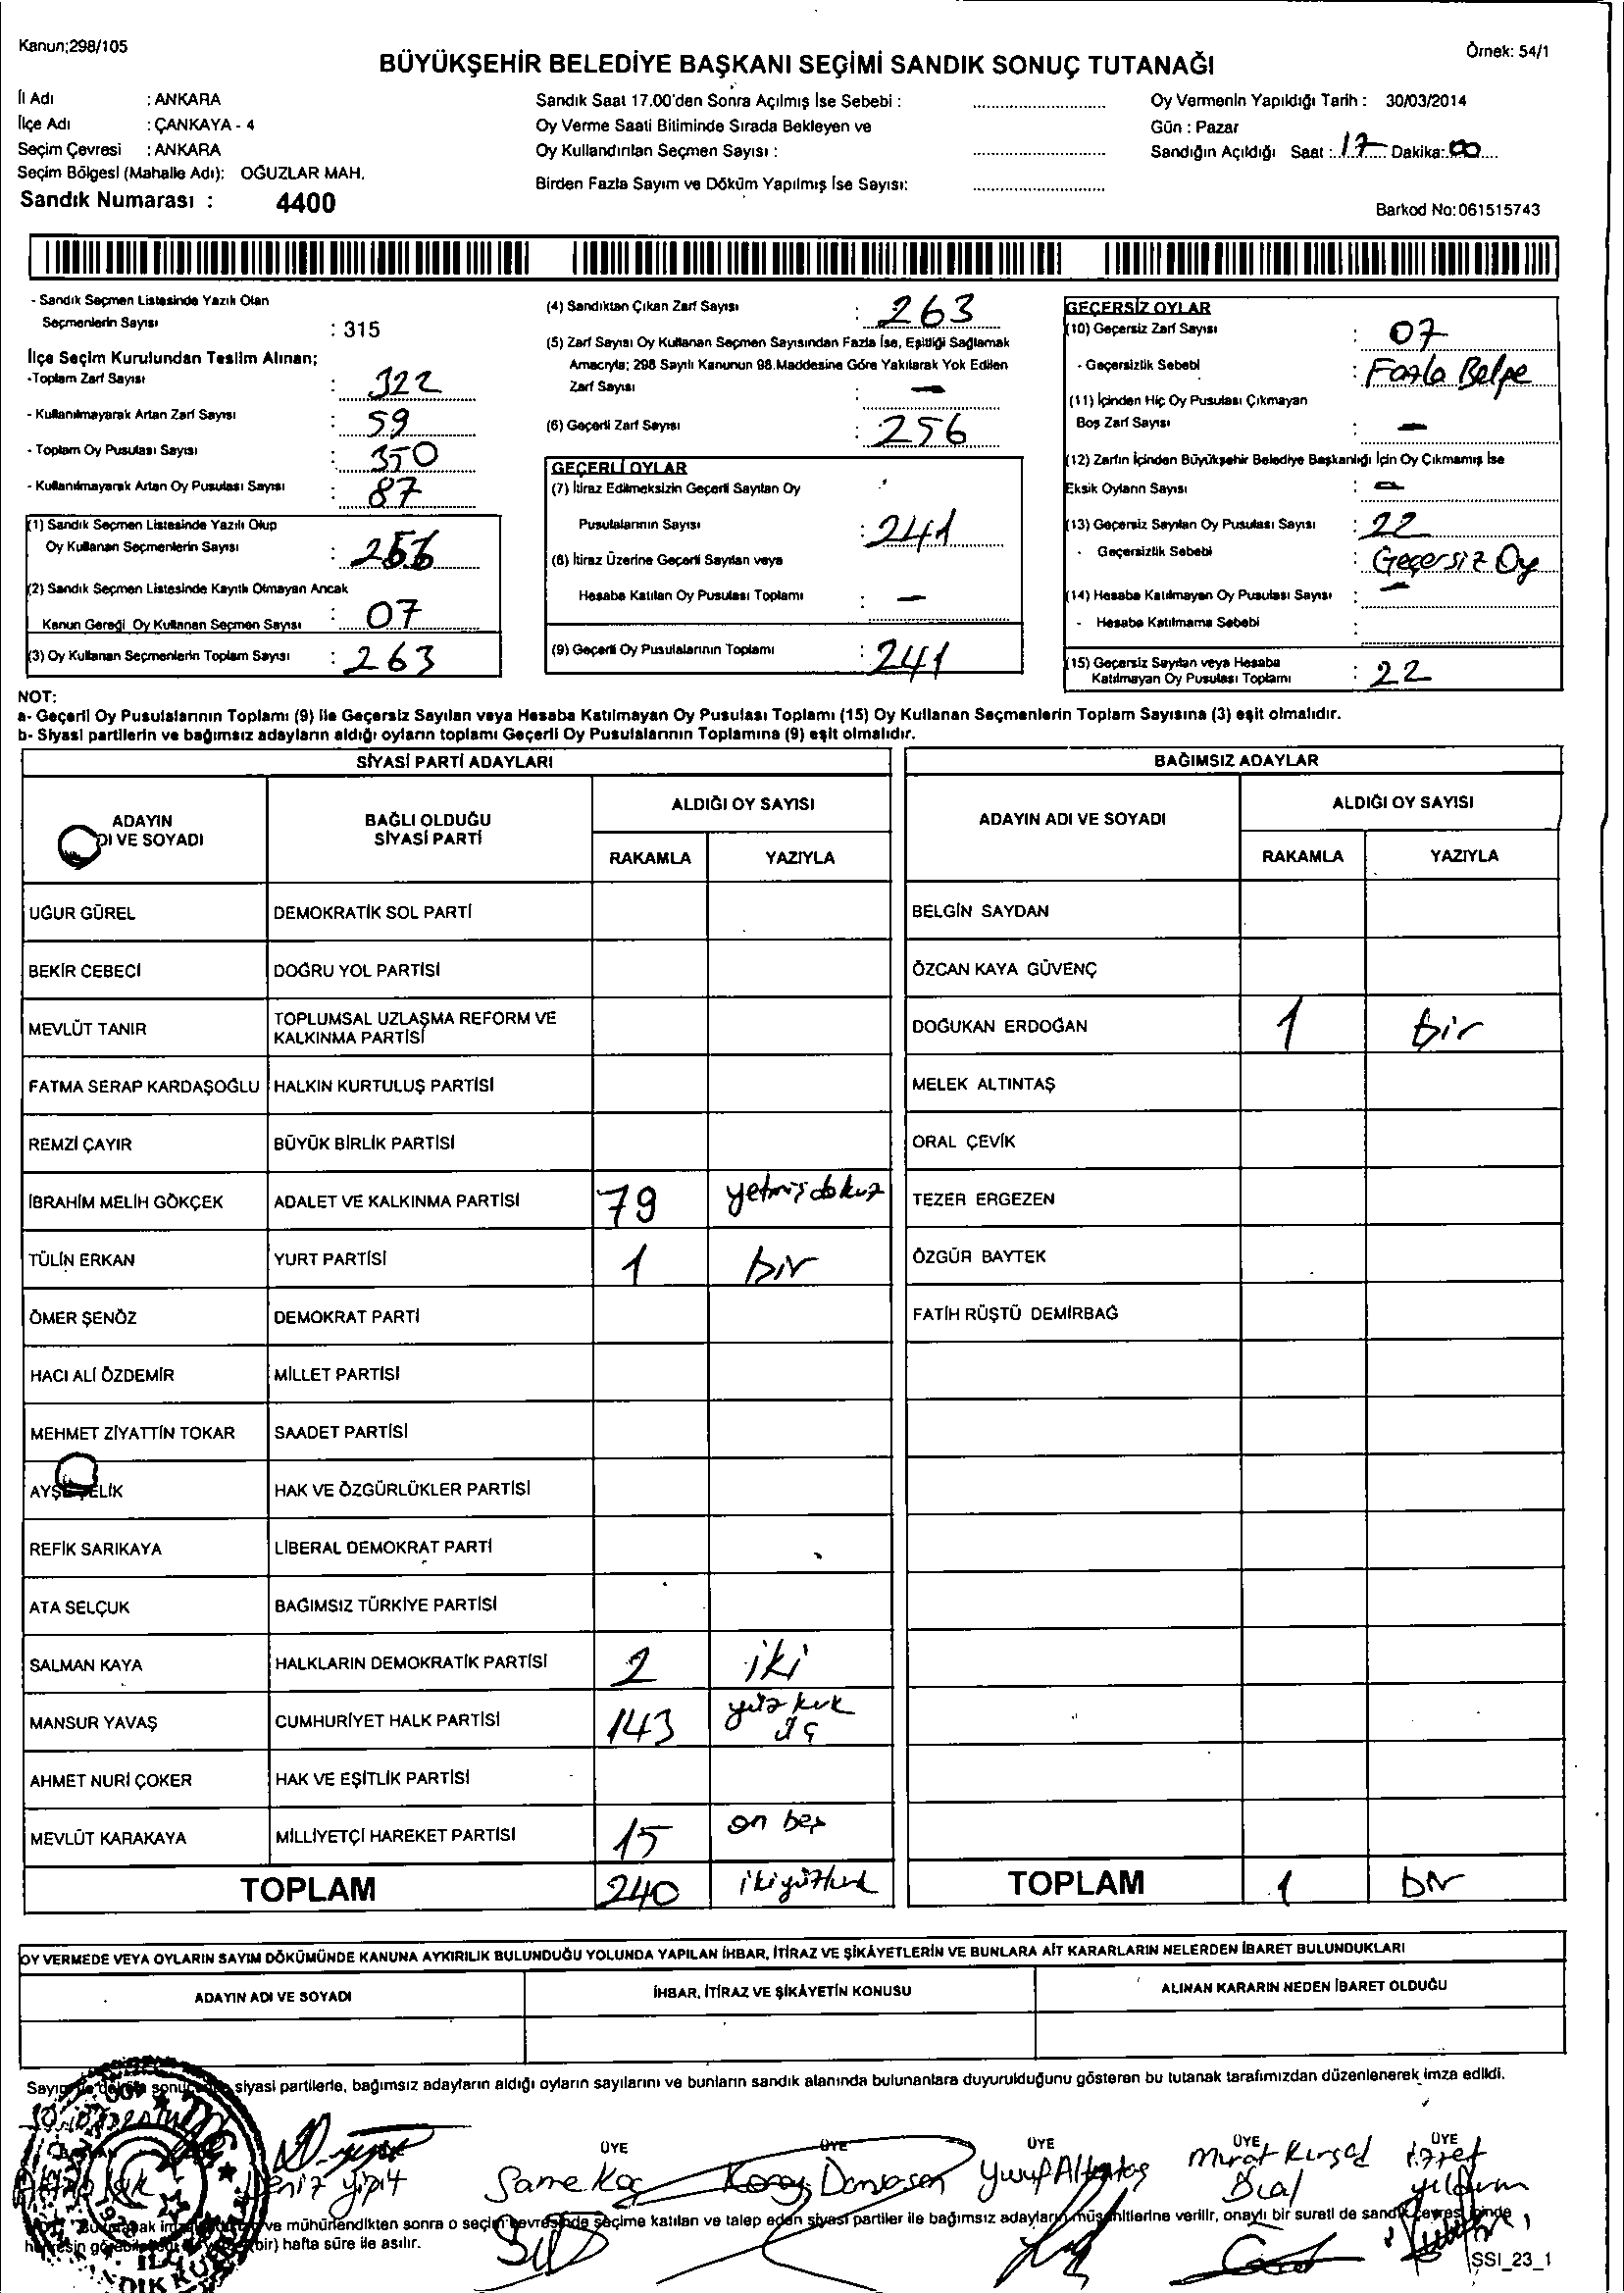 Kanun;298/105
Örnek: 54/1
BÜYÜKŞEHİR BELEDİYE BAŞKANI SEÇİMİ SANDIK SONUÇ TUTANAĞI
İl Adı : ANKARA
İlçe Adı : ÇANKAYA - 4
Seçim Çevresi : ANKARA
Seçim Bölgesi (Mahalle Adı): OĞUZLAR MAH.
Sandık Numarası : 4400
Sandık Saat 17.00'den Sonra Açılmış İse Sebebi :
Oy Verme Saati Bitiminde Sırada Bekleyen ve
Oy Kullandırılan Seçmen Sayısı :
Birden Fazla Sayım ve Döküm Yapılmış İse Sayısı:
Oy Vermenin Yapıldığı Tarih : 30/03/2014
Gün : Pazar
Sandığın Açıldığı Saat : 17 Dakika: 00
Barkod No:061515743
- Sandık Seçmen Listesinde Yazılı Olan
Seçmenlerin Sayısı : 315
İlçe Seçim Kurulundan Teslim Alınan;
-Toplam Zarf Sayısı : 322
- Kullanılmayarak Artan Zarf Sayısı : 59
- Toplam Oy Pusulası Sayısı : 350
- Kullanılmayarak Artan Oy Pusulası Sayısı : 87
(1) Sandık Seçmen Listesinde Yazılı Olup
Oy Kullanan Seçmenlerin Sayısı : 256
(2) Sandık Seçmen Listesinde Kayıtlı Olmayan Ancak
Kanun Gereği Oy Kullanan Seçmen Sayısı : 07
(3) Oy Kullanan Seçmenlerin Toplam Sayısı : 263
(4) Sandıktan Çıkan Zarf Sayısı : 263
(5) Zarf Sayısı Oy Kullanan Seçmen Sayısından Fazla İse, Eşitliği Sağlamak
Amacıyla; 298 Sayılı Kanunun 98.Maddesine Göre Yakılarak Yok Edilen
Zarf Sayısı : —
(6) Geçerli Zarf Sayısı : 256
GEÇERLİ OYLAR
(7) İtiraz Edilmeksizin Geçerli Sayılan Oy
Pusulalarının Sayısı : 241
(8) İtiraz Üzerine Geçerli Sayılan veya
Hesaba Katılan Oy Pusulası Toplamı : —
(9) Geçerli Oy Pusulalarının Toplamı : 241
GEÇERSİZ OYLAR
(10) Geçersiz Zarf Sayısı : 07
- Geçersizlik Sebebi : Fazla Belge
(11) İçinden Hiç Oy Pusulası Çıkmayan
Boş Zarf Sayısı : —
(12) Zarfın İçinden Büyükşehir Belediye Başkanlığı İçin Oy Çıkmamış İse
Eksik Oyların Sayısı : —
(13) Geçersiz Sayılan Oy Pusulası Sayısı : 22
- Geçersizlik Sebebi : Geçersiz Oy
(14) Hesaba Katılmayan Oy Pusulası Sayısı : —
- Hesaba Katılmama Sebebi :
(15) Geçersiz Sayılan veya Hesaba
Katılmayan Oy Pusulası Toplamı : 22
NOT:
a- Geçerli Oy Pusulalarının Toplamı (9) ile Geçersiz Sayılan veya Hesaba Katılmayan Oy Pusulası Toplamı (15) Oy Kullanan Seçmenlerin Toplam Sayısına (3) eşit olmalıdır.
b- Siyasi partilerin ve bağımsız adayların aldığı oyların toplamı Geçerli Oy Pusulalarının Toplamına (9) eşit olmalıdır.
SİYASİ PARTİ ADAYLARI
ADAYIN
DI VE SOYADI
BAĞLI OLDUĞU
SİYASİ PARTİ
ALDIĞI OY SAYISI
RAKAMLA YAZIYLA
UĞUR GÜREL DEMOKRATİK SOL PARTİ
BEKİR CEBECİ DOĞRU YOL PARTİSİ
MEVLÜT TANIR TOPLUMSAL UZLAŞMA REFORM VE
KALKINMA PARTİSİ
FATMA SERAP KARDAŞOĞLU HALKIN KURTULUŞ PARTİSİ
REMZİ ÇAYIR BÜYÜK BİRLİK PARTİSİ
İBRAHİM MELİH GÖKÇEK ADALET VE KALKINMA PARTİSİ 79 yetmiş dokuz
TÜLİN ERKAN YURT PARTİSİ 1 bir
ÖMER ŞENÖZ DEMOKRAT PARTİ
HACI ALİ ÖZDEMİR MİLLET PARTİSİ
MEHMET ZİYATTİN TOKAR SAADET PARTİSİ
AYŞE ÇELİK HAK VE ÖZGÜRLÜKLER PARTİSİ
REFİK SARIKAYA LİBERAL DEMOKRAT PARTİ
ATA SELÇUK BAĞIMSIZ TÜRKİYE PARTİSİ
SALMAN KAYA HALKLARIN DEMOKRATİK PARTİSİ 2 iki
MANSUR YAVAŞ CUMHURİYET HALK PARTİSİ 143 yüz kırk
üç
AHMET NURİ ÇOKER HAK VE EŞİTLİK PARTİSİ
MEVLÜT KARAKAYA MİLLİYETÇİ HAREKET PARTİSİ 15 on beş
TOPLAM 240 ikiyüzkırk
BAĞIMSIZ ADAYLAR
ADAYIN ADI VE SOYADI
ALDIĞI OY SAYISI
RAKAMLA YAZIYLA
BELGİN SAYDAN
ÖZCAN KAYA GÜVENÇ
DOĞUKAN ERDOĞAN 1 bir
MELEK ALTINTAŞ
ORAL ÇEVİK
TEZER ERGEZEN
ÖZGÜR BAYTEK
FATİH RÜŞTÜ DEMİRBAĞ
TOPLAM 1 bir
OY VERMEDE VEYA OYLARIN SAYIM DÖKÜMÜNDE KANUNA AYKIRILIK BULUNDUĞU YOLUNDA YAPILAN İHBAR, İTİRAZ VE ŞİKÂYETLERİN VE BUNLARA AİT KARARLARIN NELERDEN İBARET BULUNDUKLARI
ADAYIN ADI VE SOYADI
İHBAR, İTİRAZ VE ŞİKÂYETİN KONUSU
ALINAN KARARIN NEDEN İBARET OLDUĞU
siyasi partilerle, bağımsız adayların aldığı oyların sayılarını ve bunların sandık alanında bulunanlara duyurulduğunu gösteren bu tutanak tarafımızdan düzenlenerek imza edildi.
ÜYE ÜYE ÜYE ÜYE ÜYE
Deniz Yiğit Same Koç Koray Yusuf Altıntaş Murat Kürşad
Öcal
İzzet
Yıldırım
ve mühürlendikten sonra o seçim çevresinde seçime katılan ve talep eden siyasi partiler ile bağımsız adayların müşahitlerine verilir, onaylı bir sureti de sandık çevresinde
(bir) hafta süre ile asılır.
SSI_23_1